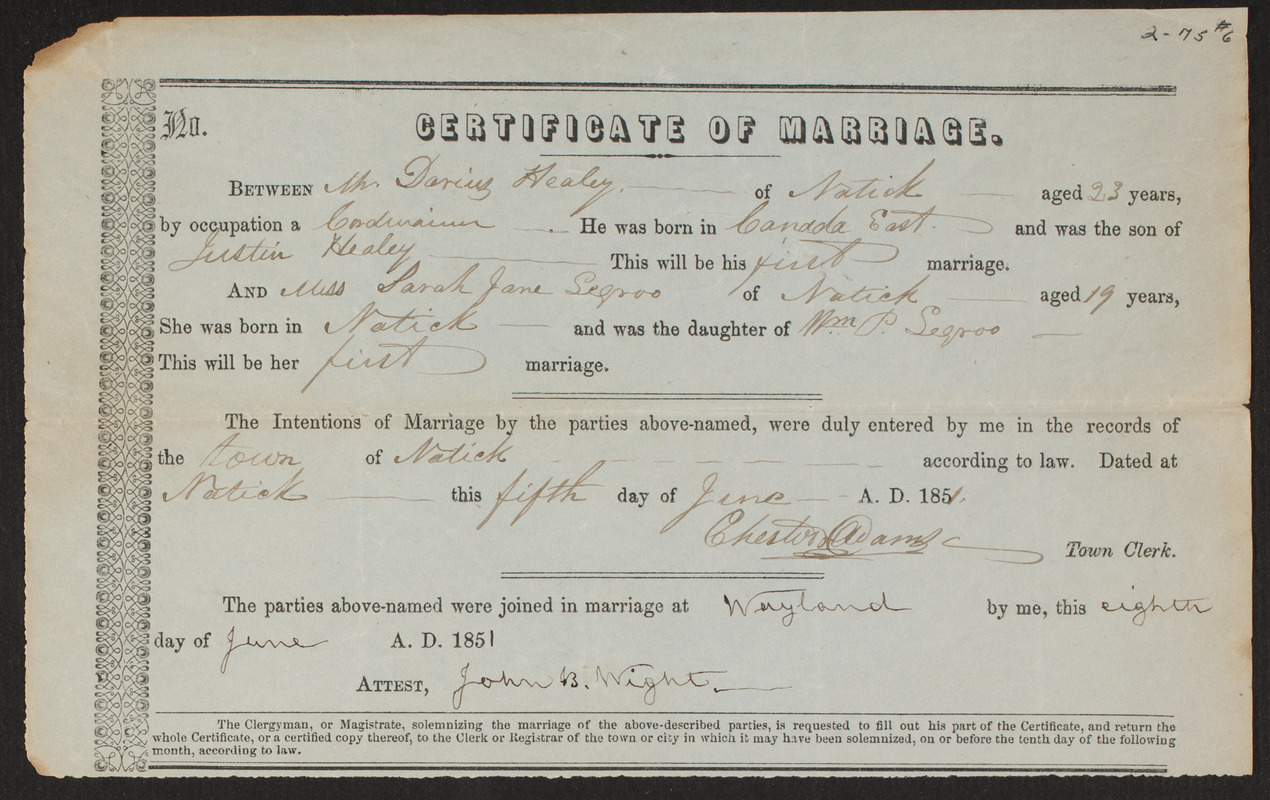 2-75 #6
No. CERTIFICATE OF MARRIAGE.
BETWEEN Mr. Darius Healey. of Natick aged 23 years,
by occupation a Cordwainer He was born in Canada East. and was the son of
Justin Healey This will be his first marriage.
AND Miss Sarah Jane Segroo of Natick aged 19 years,
She was born in Natick and was the daughter of Wm P. Segroo
This will be her first marriage.
The Intentions of Marriage by the parties above-named, were duly entered by me in the records of
the town of Natick according to law. Dated at
Natick this fifth day of June A. D. 1851.
Chester Adams Town Clerk.
The parties above-named were joined in marriage at Wayland by me, this eighth
day of June A. D. 1851
ATTEST, John B. Wight.
The Clergyman, or Magistrate, solemnizing the marriage of the above-described parties, is requested to fill out his part of the Certificate, and return the
whole Certificate, or a certified copy thereof, to the Clerk or Registrar of the town or city in which it may have been solemnized, on or before the tenth day of the following
month, according to law.